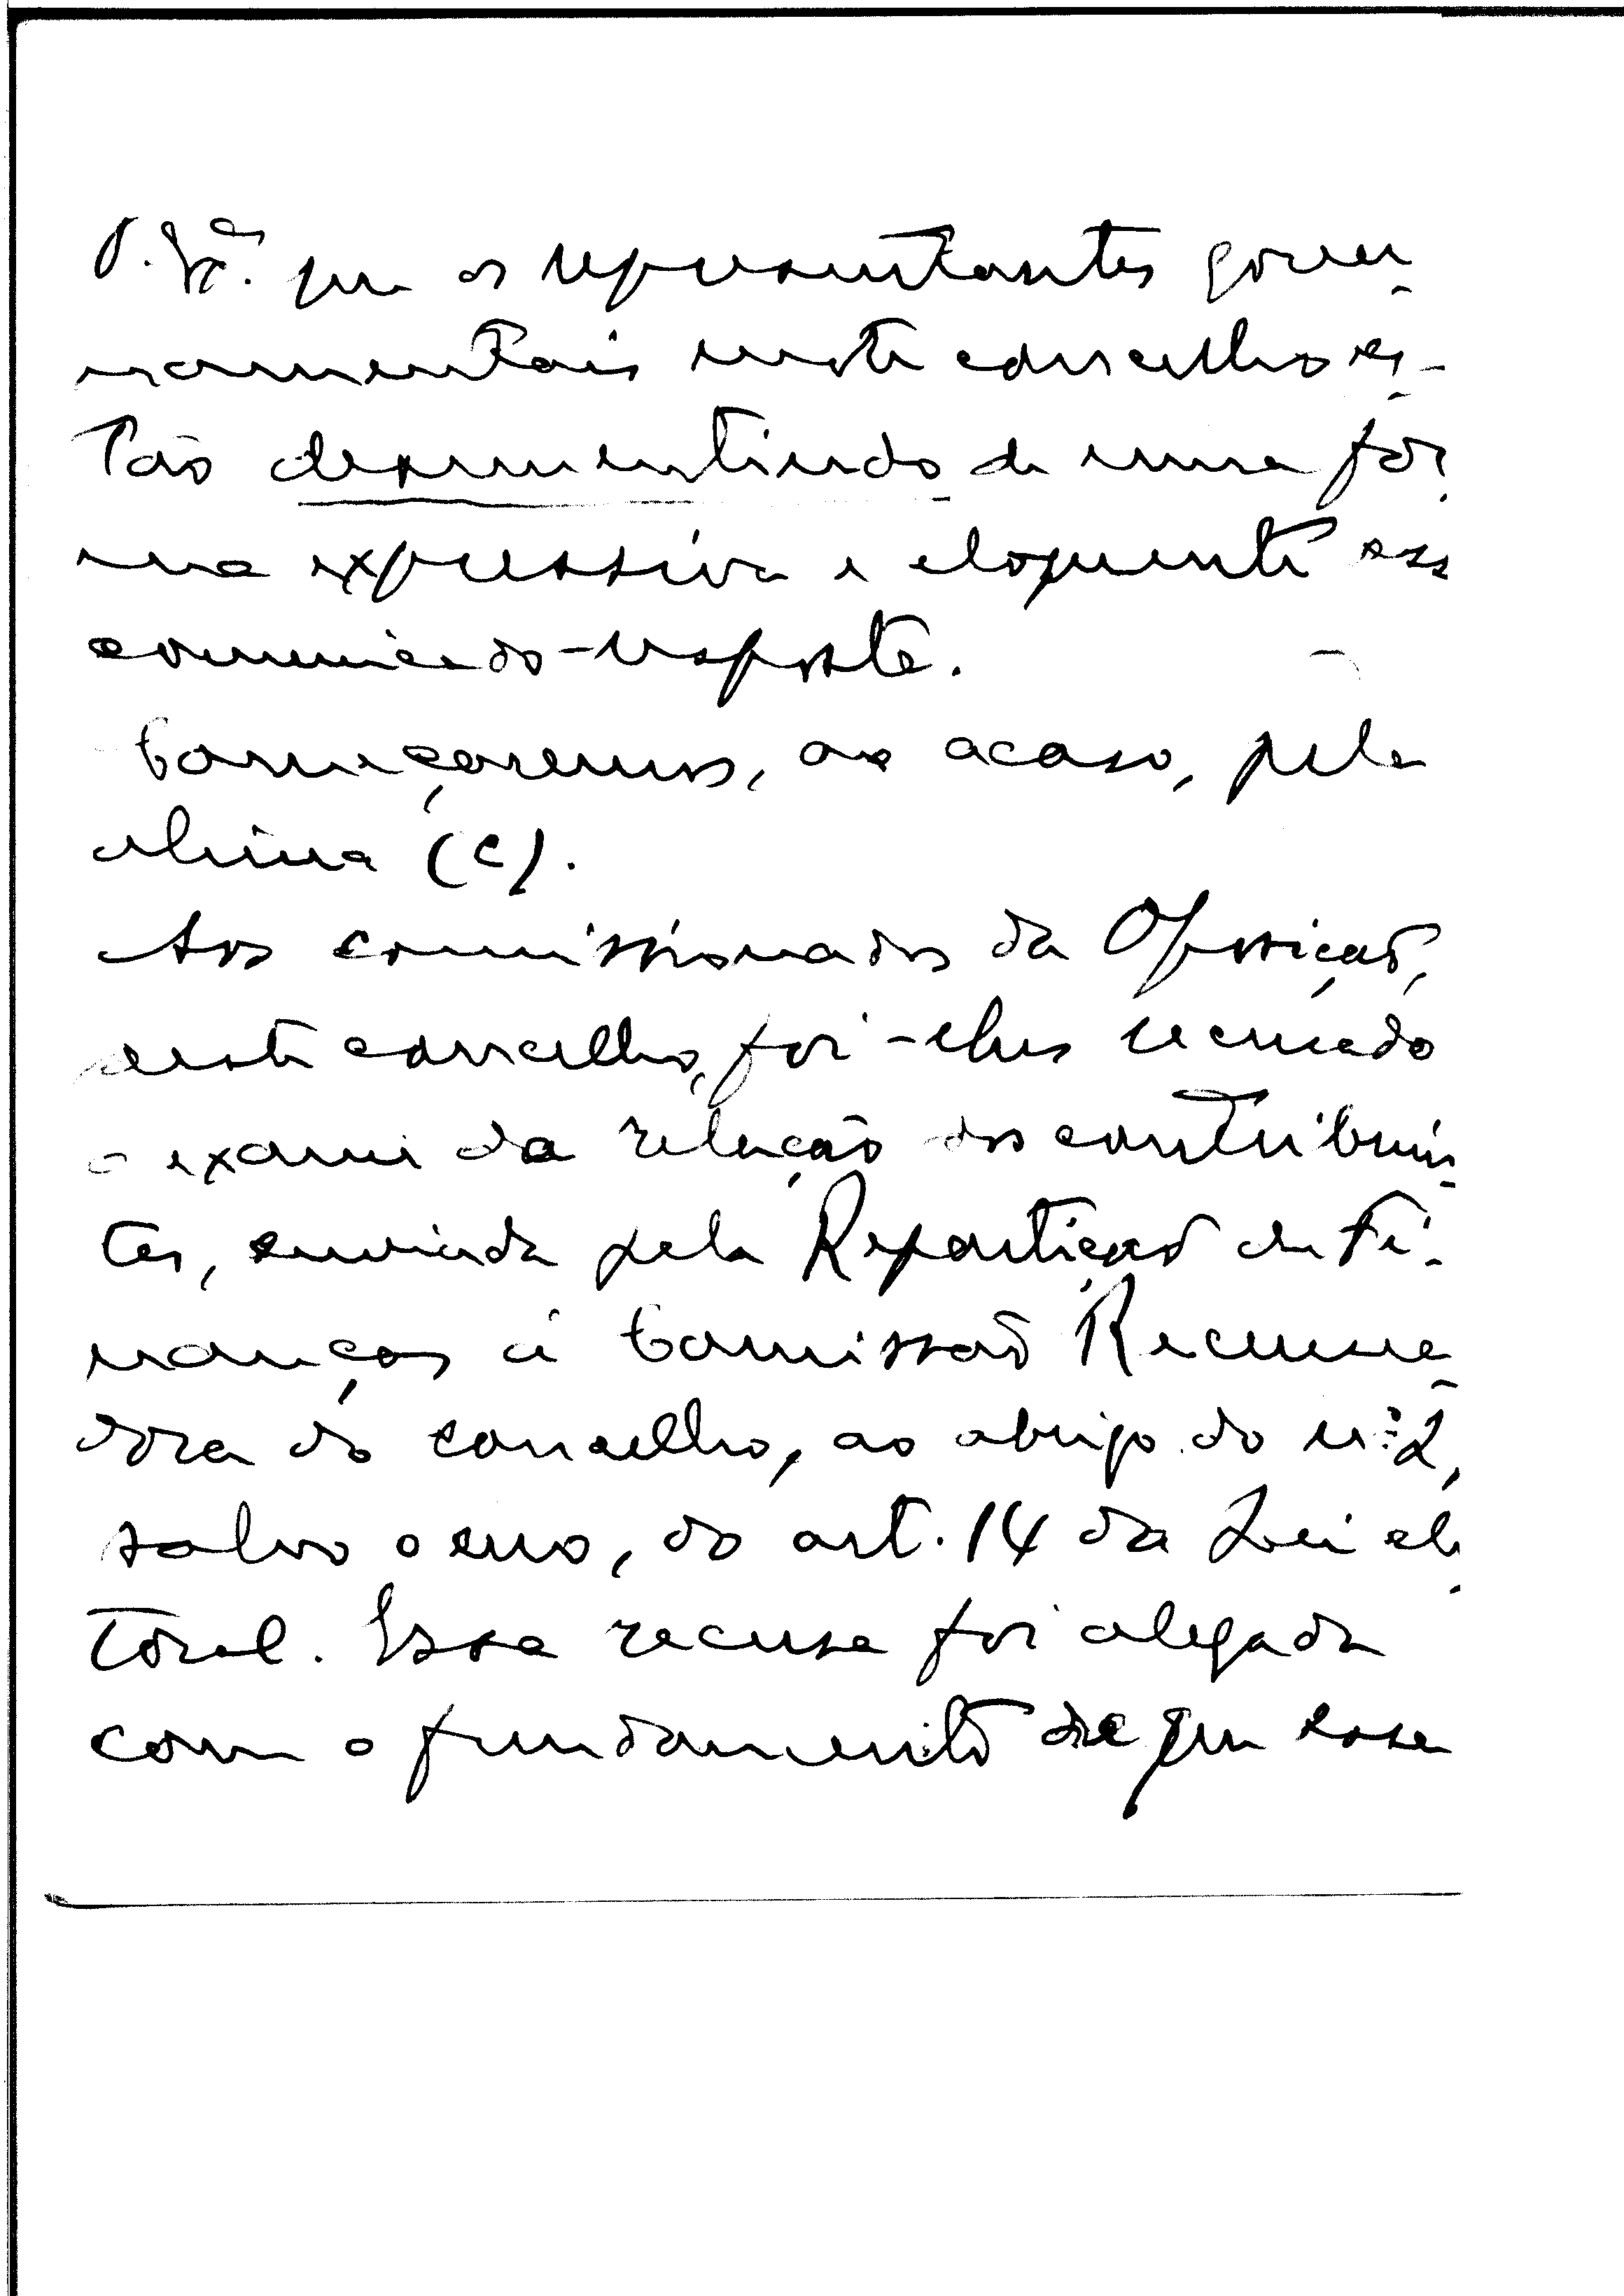 V. Exª. que os representantes gover-
namentais neste concelho es-
tão desmentindo de uma for-
ma expressiva e eloquente esse
comunicado-resposta.
Começaremos, ao acaso, pela
alinea (c).
Aos comissionados da Oposição,
neste concelho, foi-lhes recusado
o exame da relação dos contribuin-
tes, enviada pela Repartição de Fi-
nanças á Comissão Recensea-
dora do concelho, ao abrigo do nº 2,
salvo o erro, do art. 14 da Lei elei-
toral. Essa recusa foi alegada
com o fundamento de que essa